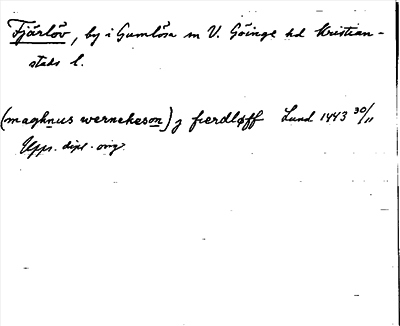 Fjärlöv, by i Gumlösa sn V. Göinge hd Kristian-
stads l.
(maghnus wernekeson) j fierdløff Lund 1443 30/11
Upps. dipl. orig.